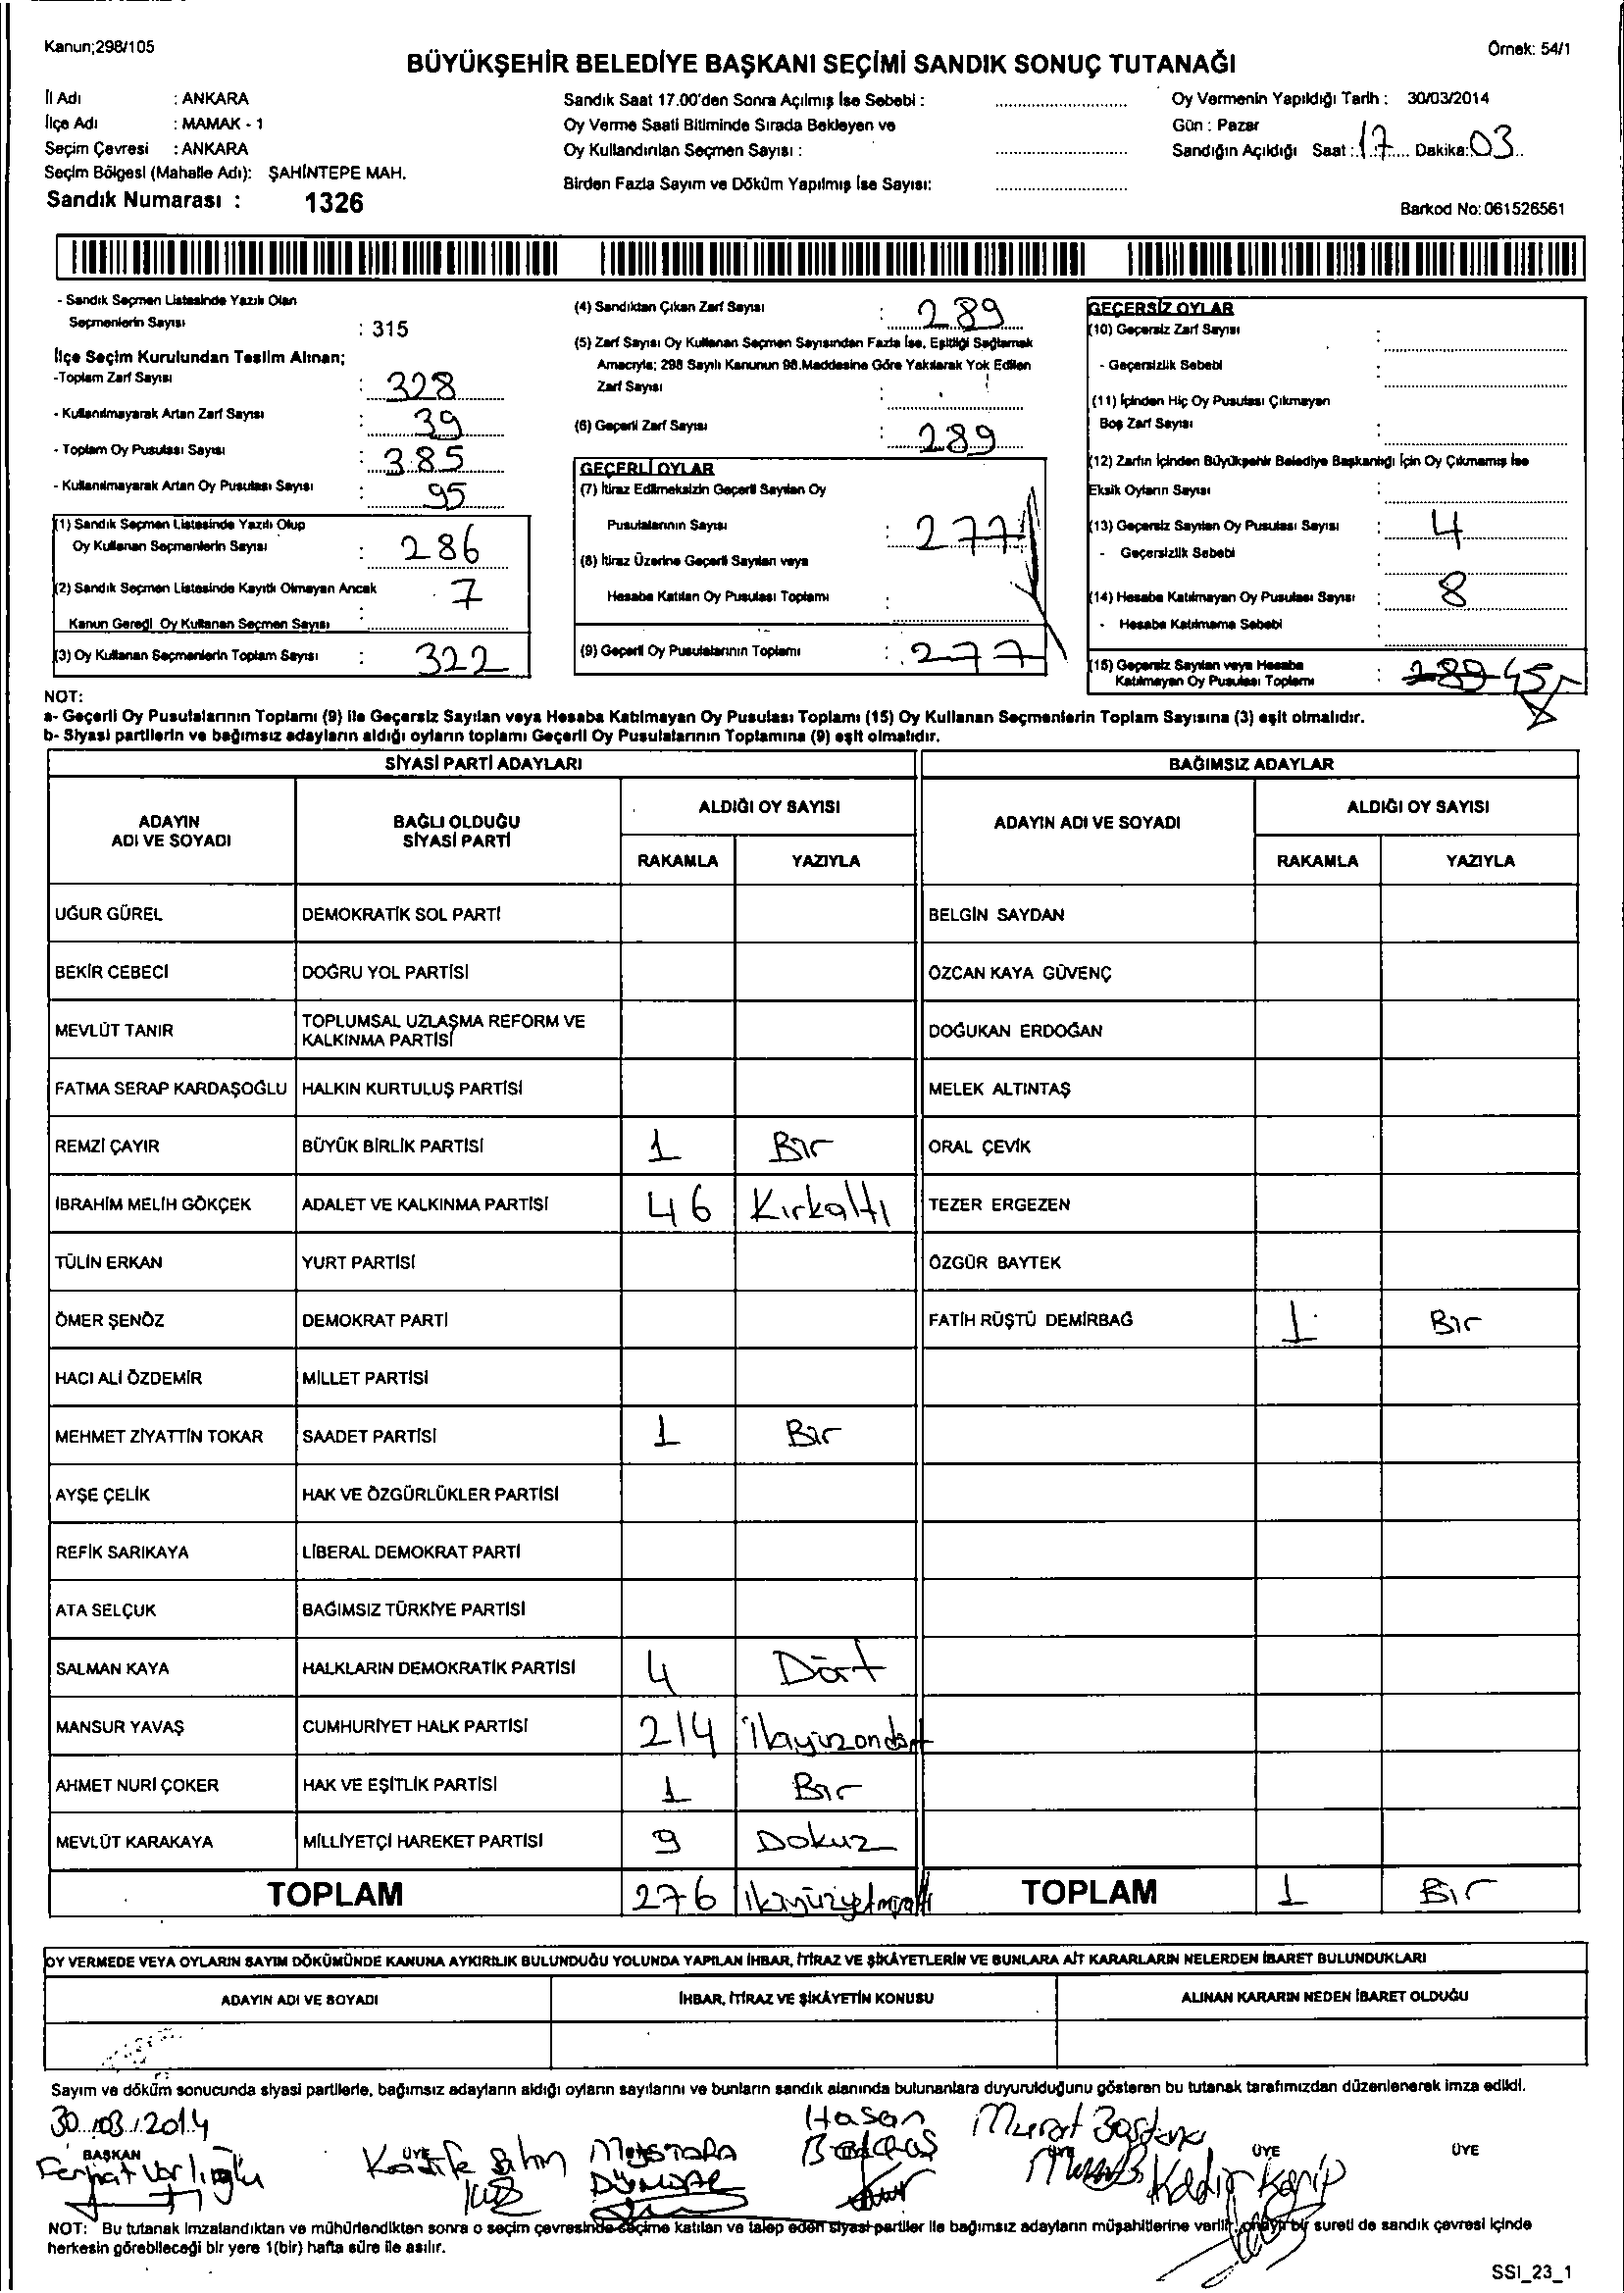 Kanun;298/105
Örnek: 54/1
BÜYÜKŞEHİR BELEDİYE BAŞKANI SEÇİMİ SANDIK SONUÇ TUTANAĞI
İl Adı : ANKARA
İlçe Adı : MAMAK - 1
Seçim Çevresi : ANKARA
Seçim Bölgesi (Mahalle Adı): ŞAHİNTEPE MAH.
Sandık Numarası : 1326
Sandık Saat 17.00'den Sonra Açılmış İse Sebebi :
Oy Verme Saati Bitiminde Sırada Bekleyen ve
Oy Kullandırılan Seçmen Sayısı :
Birden Fazla Sayım ve Döküm Yapılmış İse Sayısı:
Oy Vermenin Yapıldığı Tarih : 30/03/2014
Gün : Pazar
Sandığın Açıldığı Saat : 17 Dakika: 03
Barkod No: 061526561
- Sandık Seçmen Listesinde Yazılı Olan
Seçmenlerin Sayısı : 315
İlçe Seçim Kurulundan Teslim Alınan;
-Toplam Zarf Sayısı : 328
- Kullanılmayarak Artan Zarf Sayısı : 39
- Toplam Oy Pusulası Sayısı : 385
- Kullanılmayarak Artan Oy Pusulası Sayısı : 95
(1) Sandık Seçmen Listesinde Yazılı Olup
Oy Kullanan Seçmenlerin Sayısı : 286
(2) Sandık Seçmen Listesinde Kayıtlı Olmayan Ancak
Kanun Gereği Oy Kullanan Seçmen Sayısı : 7
(3) Oy Kullanan Seçmenlerin Toplam Sayısı : 322
(4) Sandıktan Çıkan Zarf Sayısı : 289
(5) Zarf Sayısı Oy Kullanan Seçmen Sayısından Fazla İse, Eşitliği Sağlamak
Amacıyla; 298 Sayılı Kanunun 98.Maddesine Göre Yakılarak Yok Edilen
Zarf Sayısı :
(6) Geçerli Zarf Sayısı : 289
GEÇERLİ OYLAR
(7) İtiraz Edilmeksizin Geçerli Sayılan Oy
Pusulalarının Sayısı : 277
(8) İtiraz Üzerine Geçerli Sayılan veya
Hesaba Katılan Oy Pusulası Toplamı :
(9) Geçerli Oy Pusulalarının Toplamı : 277
GEÇERSİZ OYLAR
(10) Geçersiz Zarf Sayısı :
- Geçersizlik Sebebi :
(11) İçinden Hiç Oy Pusulası Çıkmayan
Boş Zarf Sayısı :
(12) Zarfın İçinden Büyükşehir Belediye Başkanlığı İçin Oy Çıkmamış İse
Eksik Oyların Sayısı :
(13) Geçersiz Sayılan Oy Pusulası Sayısı : 4
- Geçersizlik Sebebi :
(14) Hesaba Katılmayan Oy Pusulası Sayısı : 8
- Hesaba Katılmama Sebebi :
(15) Geçersiz Sayılan veya Hesaba
Katılmayan Oy Pusulası Toplamı : 289 45
NOT:
a- Geçerli Oy Pusulalarının Toplamı (9) ile Geçersiz Sayılan veya Hesaba Katılmayan Oy Pusulası Toplamı (15) Oy Kullanan Seçmenlerin Toplam Sayısına (3) eşit olmalıdır.
b- Siyasi partilerin ve bağımsız adayların aldığı oyların toplamı Geçerli Oy Pusulalarının Toplamına (9) eşit olmalıdır.
SİYASİ PARTİ ADAYLARI
BAĞIMSIZ ADAYLAR
ADAYIN ADI VE SOYADI
BAĞLI OLDUĞU SİYASİ PARTİ
ALDIĞI OY SAYISI
RAKAMLA YAZIYLA
ADAYIN ADI VE SOYADI
ALDIĞI OY SAYISI
RAKAMLA YAZIYLA
UĞUR GÜREL DEMOKRATİK SOL PARTİ BELGİN SAYDAN
BEKİR CEBECİ DOĞRU YOL PARTİSİ ÖZCAN KAYA GÜVENÇ
MEVLÜT TANIR TOPLUMSAL UZLAŞMA REFORM VE KALKINMA PARTİSİ DOĞUKAN ERDOĞAN
FATMA SERAP KARDAŞOĞLU HALKIN KURTULUŞ PARTİSİ MELEK ALTINTAŞ
REMZİ ÇAYIR BÜYÜK BİRLİK PARTİSİ 1 Bir ORAL ÇEVİK
İBRAHİM MELİH GÖKÇEK ADALET VE KALKINMA PARTİSİ 46 Kırkaltı TEZER ERGEZEN
TÜLİN ERKAN YURT PARTİSİ ÖZGÜR BAYTEK
ÖMER ŞENÖZ DEMOKRAT PARTİ FATİH RÜŞTÜ DEMİRBAĞ 1 Bir
HACI ALİ ÖZDEMİR MİLLET PARTİSİ
MEHMET ZİYATTİN TOKAR SAADET PARTİSİ 1 Bir
AYŞE ÇELİK HAK VE ÖZGÜRLÜKLER PARTİSİ
REFİK SARIKAYA LİBERAL DEMOKRAT PARTİ
ATA SELÇUK BAĞIMSIZ TÜRKİYE PARTİSİ
SALMAN KAYA HALKLARIN DEMOKRATİK PARTİSİ 4 Dört
MANSUR YAVAŞ CUMHURİYET HALK PARTİSİ 214 ikiyüzondört
AHMET NURİ ÇOKER HAK VE EŞİTLİK PARTİSİ 1 Bir
MEVLÜT KARAKAYA MİLLİYETÇİ HAREKET PARTİSİ 9 Dokuz
TOPLAM 276 ikiyüzyetmişaltı TOPLAM 1 Bir
OY VERMEDE VEYA OYLARIN SAYIM DÖKÜMÜNDE KANUNA AYKIRILIK BULUNDUĞU YOLUNDA YAPILAN İHBAR, İTİRAZ VE ŞİKÂYETLERİN VE BUNLARA AİT KARARLARIN NELERDEN İBARET BULUNDUKLARI
ADAYIN ADI VE SOYADI
İHBAR, İTİRAZ VE ŞİKÂYETİN KONUSU
ALINAN KARARIN NEDEN İBARET OLDUĞU
Sayım ve döküm sonucunda siyasi partilerle, bağımsız adayların aldığı oyların sayılarını ve bunların sandık alanında bulunanlara duyurulduğunu gösteren bu tutanak tarafımızdan düzenlenerek imza edildi.
30.03.2014
BAŞKAN ÜYE ÜYE ÜYE ÜYE
Ferhat
Mustafa
Hasan
Murat
Kadir
NOT: Bu tutanak imzalandıktan ve mühürlendikten sonra o seçim çevresinde seçime katılan ve talep eden siyasi partiler ile bağımsız adayların müşahitlerine verilir, onaylı bir sureti de sandık çevresi içinde
herkesin görebileceği bir yere 1(bir) hafta süre ile asılır.
SSI_23_1